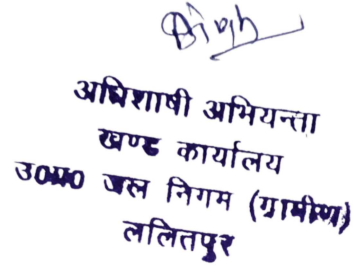 अधिशाषी अभियन्ता
खण्ड कार्यालय
उ०प्र० जल निगम (ग्रामीण)
ललितपुर